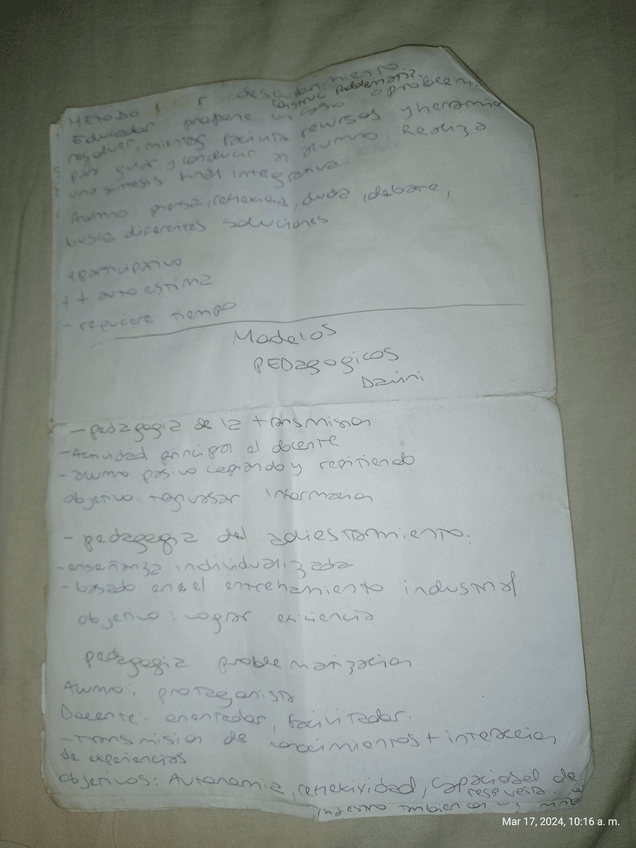 METODO descubrimiento
construc problematiz.
Educador propone un caso o problema
resolver, mientras facilita recursos y herramie
par guiar y conducir al alumno. Realiza
una sintesis final integrativa.
Alumno: piensa, reflexiona, duda, debate,
busca diferentes soluciones
+ participativo
++ autoestima
- requiere tiempo
Modelos
PEDagogicos
Davini
- pedagogia de la transmision
- Actividad principal el docente
- alumno pasivo copiando y repitiendo
objetivo: traspasar informacion
- pedagogia del adiestramiento:
- enseñanza individualizada
- basado en el entrenamiento industrial
objetivo: lograr eficiencia
pedagogia problematizacion
Alumno: protagonista
Docente: orientador, facilitador.
- transmision de conocimientos + interaccion
de experiencias
objetivos: Autonomia, reflexividad, capacidad de
respuesta
maestro tambien
Mar 17, 2024, 10:16 a. m.